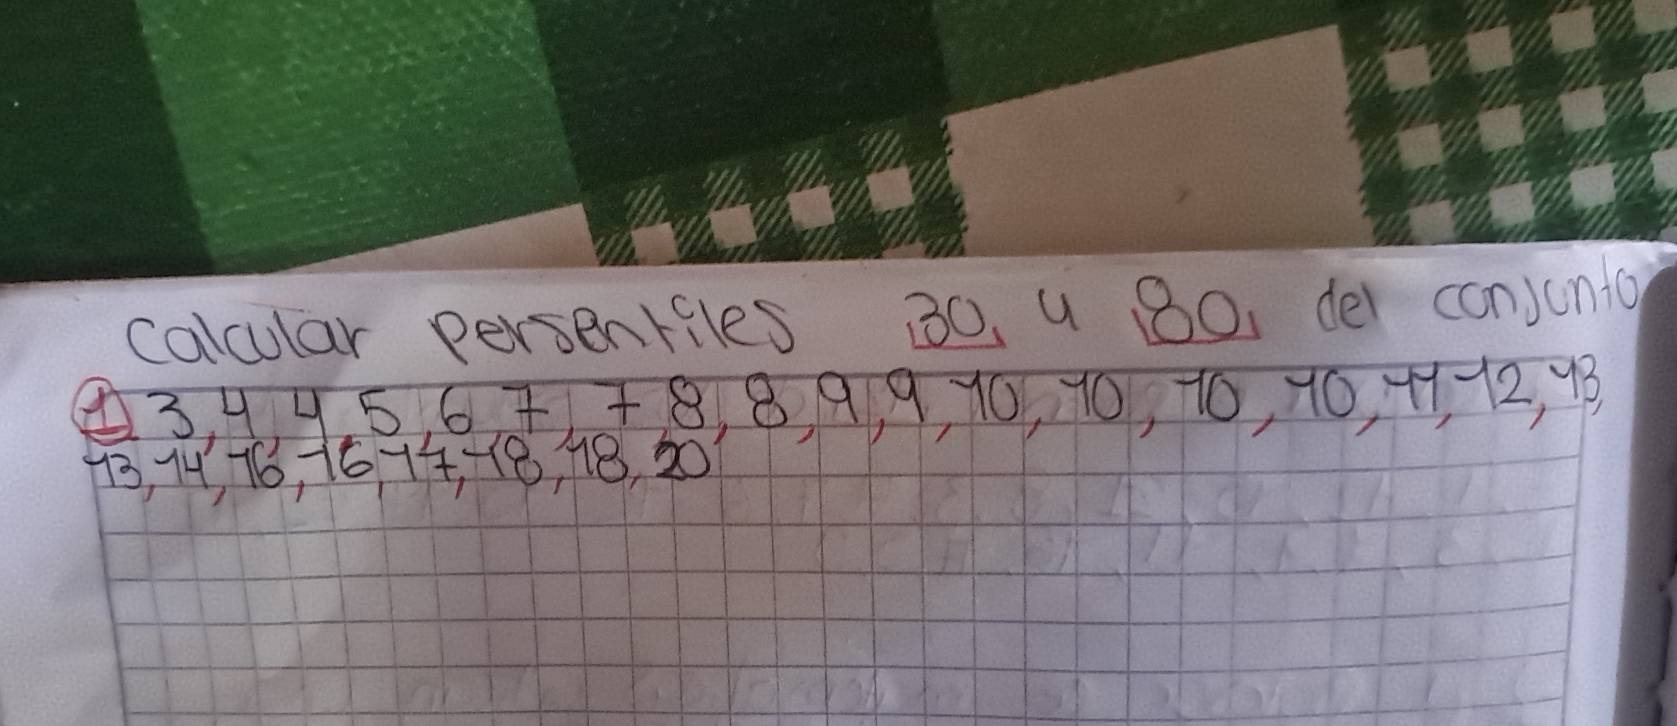 Calcular persentiles 30 y 80 del conjunto
1 3, 4, 4, 5, 6, 7, 7, 8, 8, 9, 9, 10, 10, 10, 10, 11, 12, 13,
13, 14, 16, 16, 17, 18, 18, 20